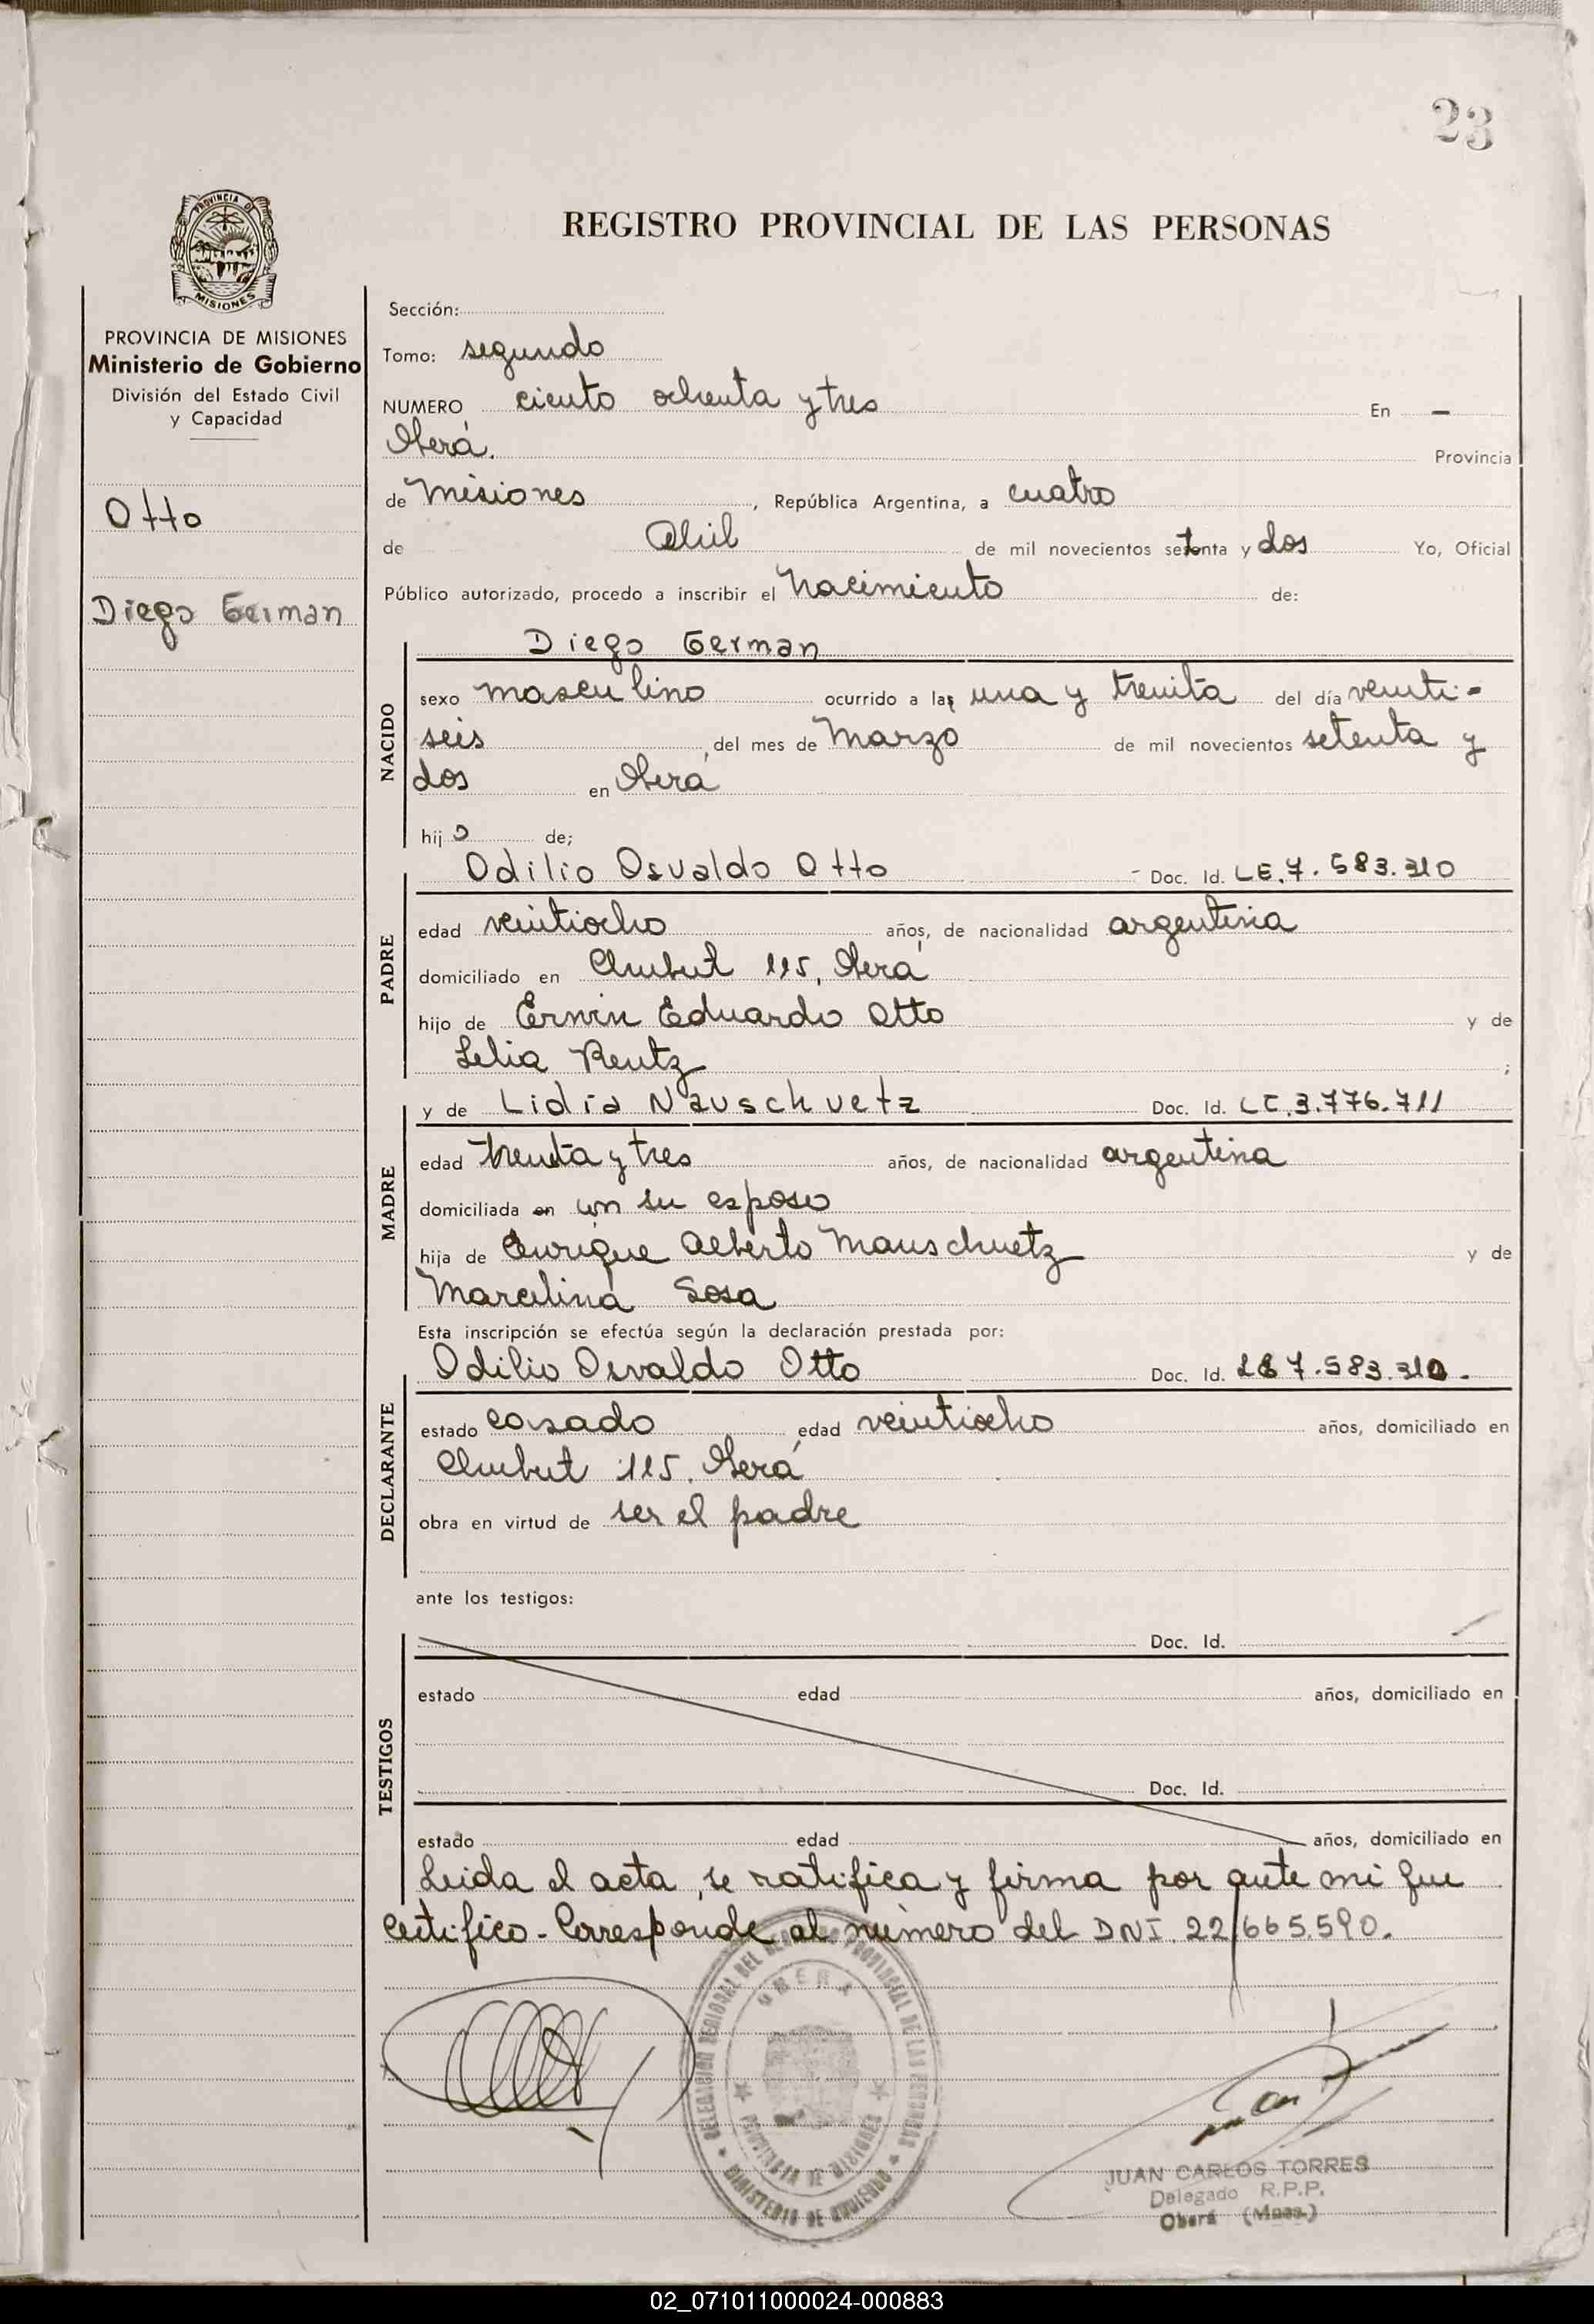 23
PROVINCIA DE
MISIONES
REGISTRO PROVINCIAL DE LAS PERSONAS
PROVINCIA DE MISIONES
Ministerio de Gobierno
División del Estado Civil
y Capacidad
Otto
Diego German
Sección:
Tomo: segundo
NUMERO ciento ochenta y tres En —
Oberá. Provincia
de Misiones, República Argentina, a cuatro
de Abril de mil novecientos setenta y dos Yo, Oficial
Público autorizado, procedo a inscribir el Nacimiento de:
NACIDO
Diego German
sexo masculino ocurrido a las una y treinta del día veinti-
seis del mes de Marzo de mil novecientos setenta y
dos en Oberá
hijo de;
PADRE
Odilio Osvaldo Otto Doc. Id. LE.7.583.310
edad veintiocho años, de nacionalidad argentina
domiciliado en Chubut 115, Oberá
hijo de Erwin Eduardo Otto y de
Lelia Rentz ;
MADRE
y de Lidia Nauschuetz Doc. Id. LC.3.776.711
edad treinta y tres años, de nacionalidad argentina
domiciliada en con su esposo
hija de Enrique Alberto Mauschuetz y de
Marcelina Sosa
Esta inscripción se efectúa según la declaración prestada por:
DECLARANTE
Odilio Osvaldo Otto Doc. Id. LE 7.583.310.
estado casado edad veintiocho años, domiciliado en
Chubut 115. Oberá
obra en virtud de ser el padre
ante los testigos:
TESTIGOS
Doc. Id.
estado edad años, domiciliado en
Doc. Id.
estado edad años, domiciliado en
Leida el acta, se ratifica y firma por ante mi que
certifico - Corresponde al número del DNI. 22/665.590.
DELEGACION REGIONAL DEL REGISTRO PROVINCIAL DE LAS PERSONAS
OBERA
PROVINCIA DE MISIONES
MINISTERIO DE GOBIERNO
JUAN CARLOS TORRES
Delegado R.P.P.
Oberá (Mnes.)
02_071011000024-000883